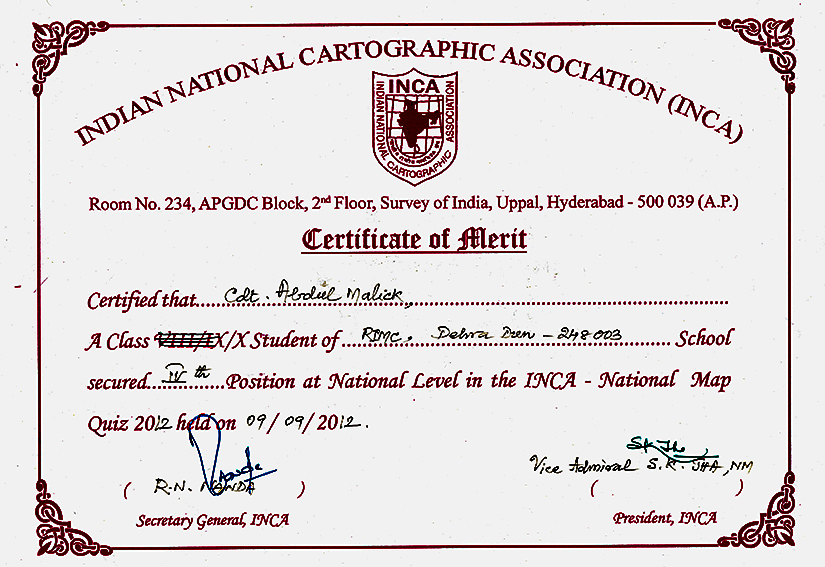 INDIAN NATIONAL CARTOGRAPHIC ASSOCIATION (INCA)
INCA
INDIAN NATIONAL CARTOGRAPHIC ASSOCIATION
Room No. 234, APGDC Block, 2nd Floor, Survey of India, Uppal, Hyderabad - 500 039 (A.P.)
Certificate of Merit
Certified that......Cdt. Abdul Malick,......
A Class VIII/IX/X Student of ...RIMC, Dehra Dun - 248003...... School
secured...IVth......Position at National Level in the INCA - National Map
Quiz 2012 held on 09/09/2012.
Nanda
SK Jha
Vice Admiral S.K. JHA, NM
( R.N. NANDA )
( )
Secretary General, INCA
President, INCA